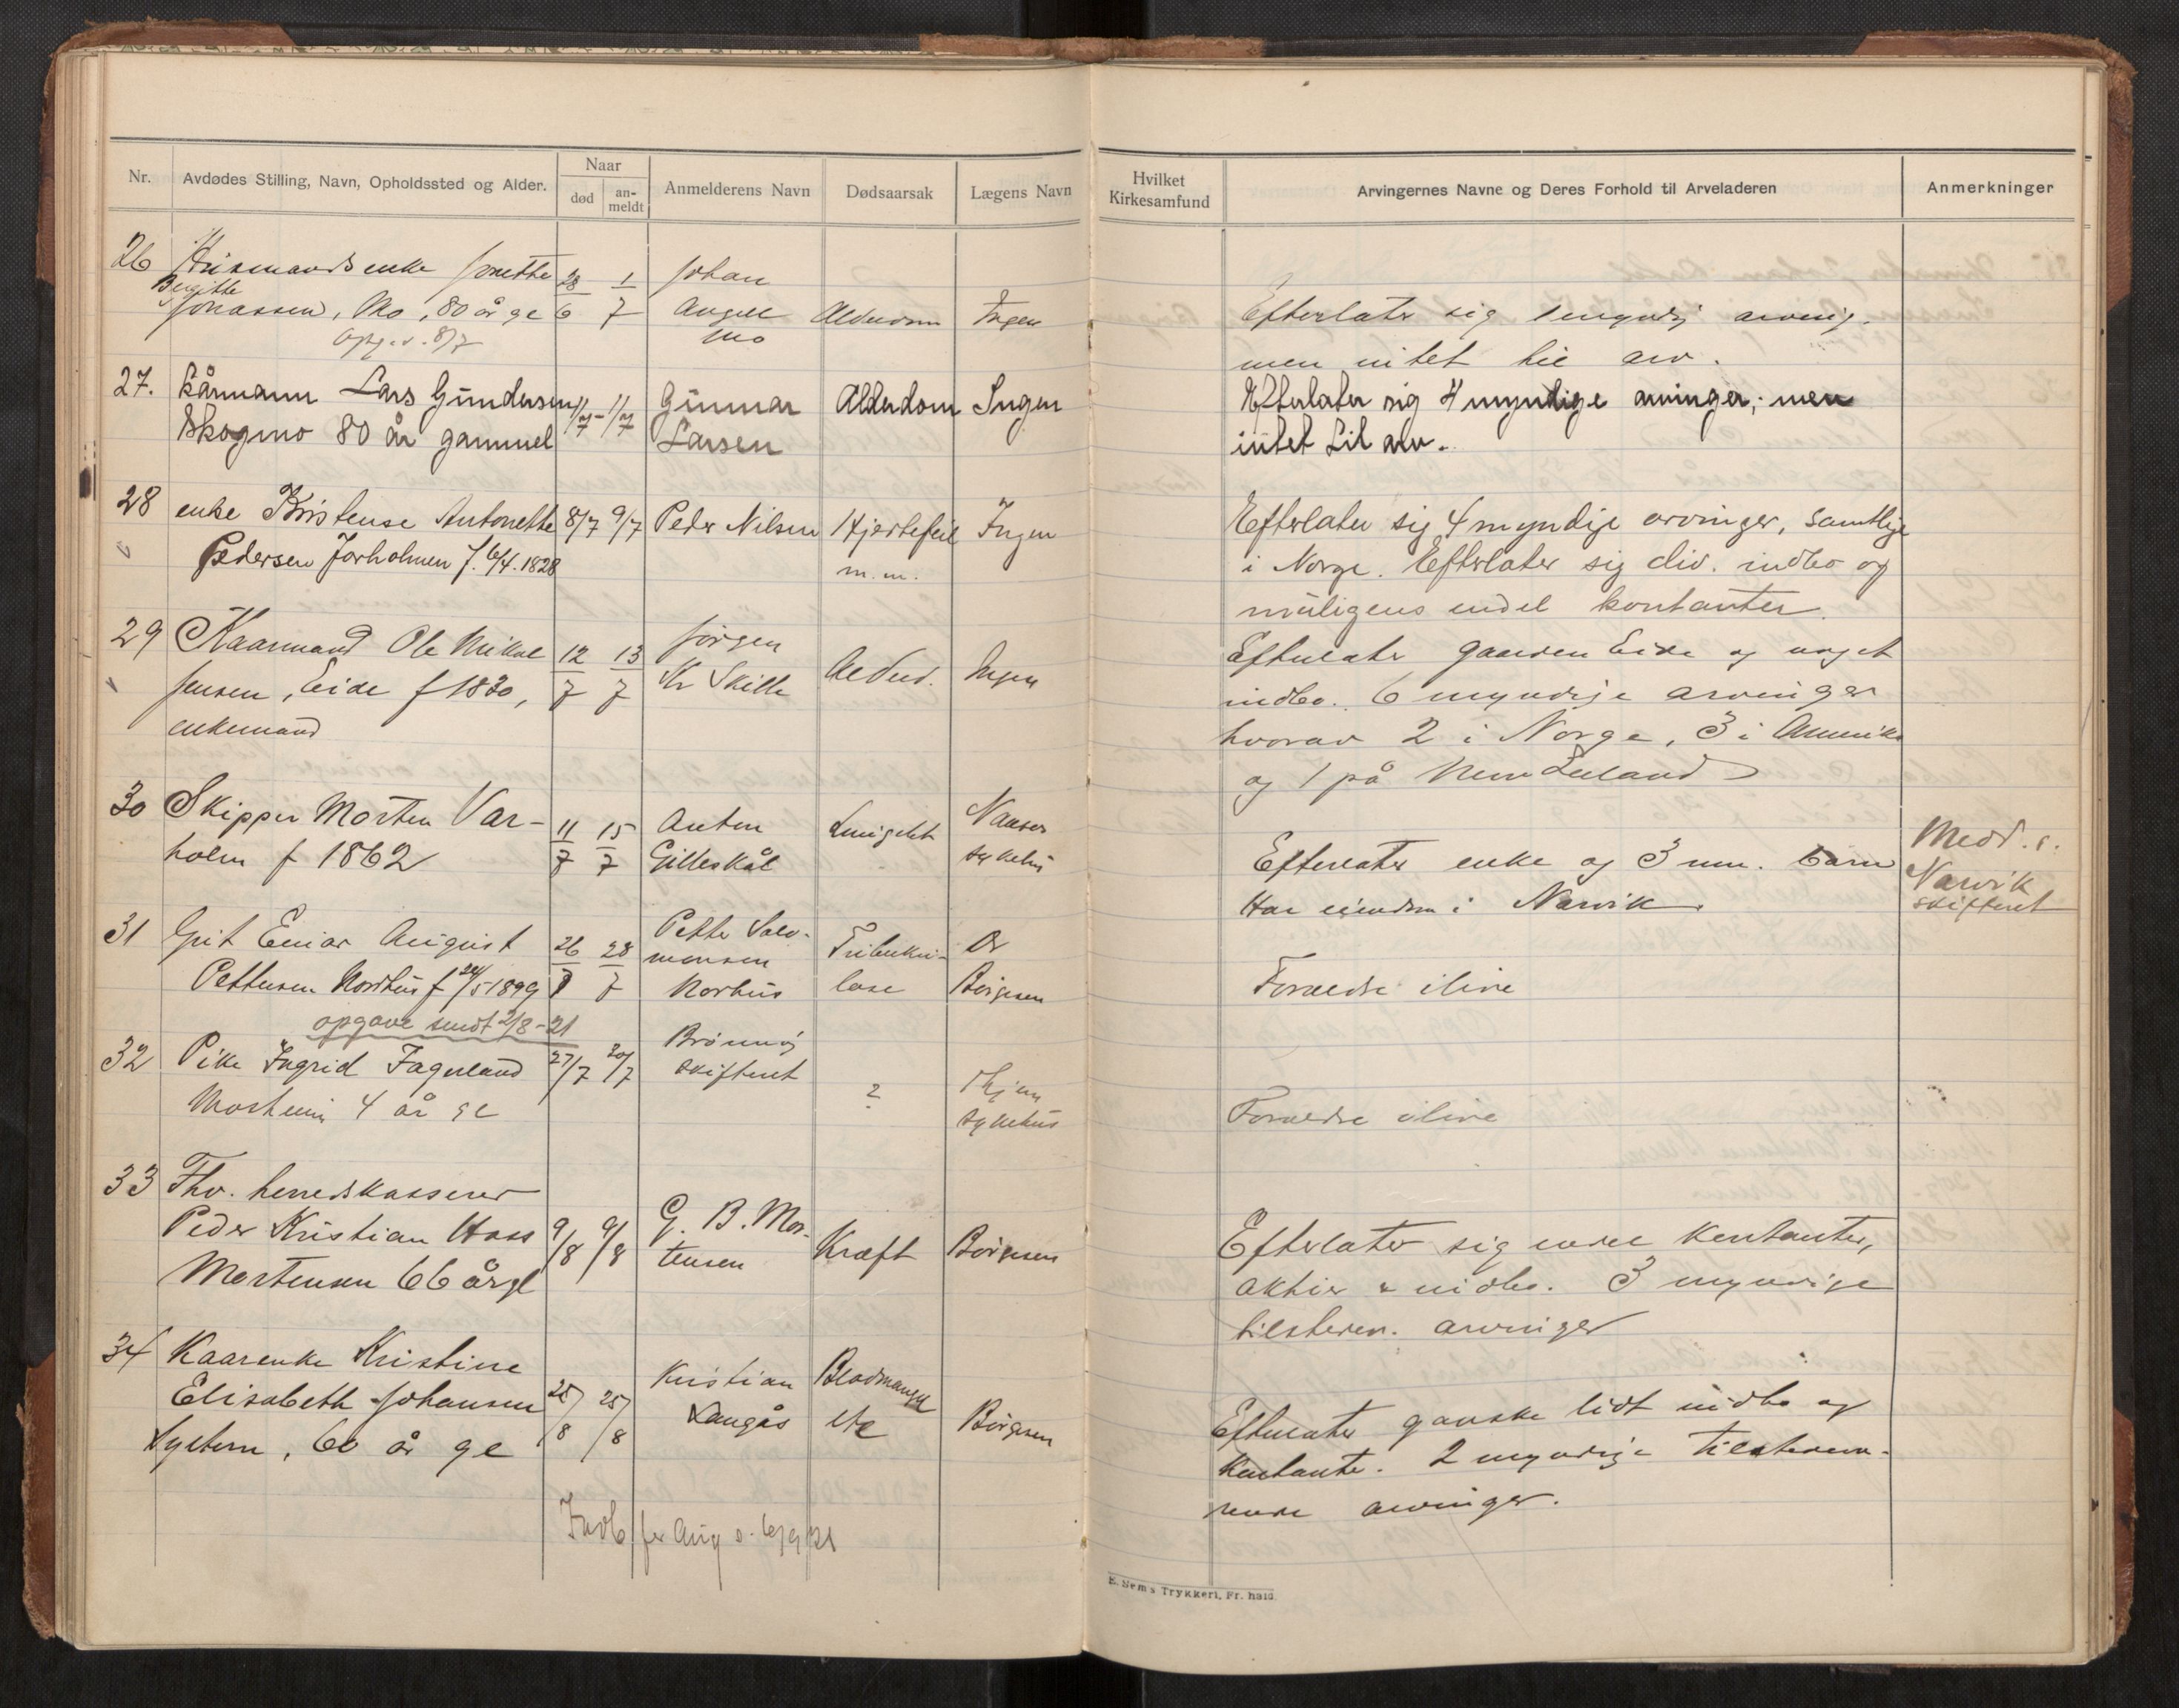 Nr.
Avdødes Stilling, Navn, Opholdssted og Alder.
Naar
død
an-
meldt
Anmelderens Navn
Dødsaarsak
Lægens Navn
Hvilket
Kirkesamfund
Arvingernes Navne og Deres Forhold til Arveladeren
Anmerkninger
26 Husmands enke Jonette 28/6 1/7 Johan
Birgitte
Jonassen, Mo, 80 år gl Angell Alderdom Ingen Efterlater sig 1 myndig arving,
Opg. s. 8/7 Mo men intet til arv.
27. Kårmann Lars Gundersen 11/7 - 11/7 Gunnar Alderdom Ingen Efterlater sig 4 myndige arvinger, men
Skogmo 80 år gammel Larsen intet til arv.
28 enke Kristense Antonette 8/7 9/7 Peder Nilsen Hjertefeil Ingen Efterlater sig 4 myndige arvinger, samtlige
Pedersen Torholmen f. 6/4. 1828 m. m. i Norge. Efterlater sig div. indbo og
muligens endel kontanter.
29 Kaarmand Ole Mikal 12/7 13/7 Jørgen Alderd. Ingen Efterlater gaarden Eide og noget
Jensen, Eide f 1830, Kr Skille indbo. 6 myndige arvinger
enkemand hvorav 2 i Norge, 3 i Amerika
og 1 på New Zeeland
30 Skipper Morten Var- 11/7 15/7 Anton Namsos
holm f 1862 Gilleskål sykehus Efterlater enke og 3 um. barn Medd. s.
Har eiendom i Narvik Narvik
skifteret
31 Gut Einar August 26/7 28/7 Petter Salo- Tuberku- Dr
Pettersen Nordhus f 24/5 1899 monsen lose Børgesen Forældre ilive
Norhus
opgave sendt 2/8-21
32 Pike Ingrid Fagerland 27/7 30/7 Brønnøy ?
Mosheim 4 år gl skifteret sykehus Forældre ilive
33 Fhv. herredskasserer
Peder Kristian Hass 9/8 9/8 G. B. Mor- Kræft Børgesen Efterlater sig endel kontanter,
Mortensen 66 årgl tensen aktier & indbo. 3 myndige
tilstedev. arvinger
34 Kaarenke Kristine
Elisabeth Johansen 25/8 25/8 Kristian Blodmangel Børgesen Efterlater ganske lidt indbo og
60 år gl Langås etc kontanter. 2 myndige tilstedevæ-
rende arvinger.
Indb for Aug s. 6/9 21
E. Sem's Trykkeri, Fr. hald